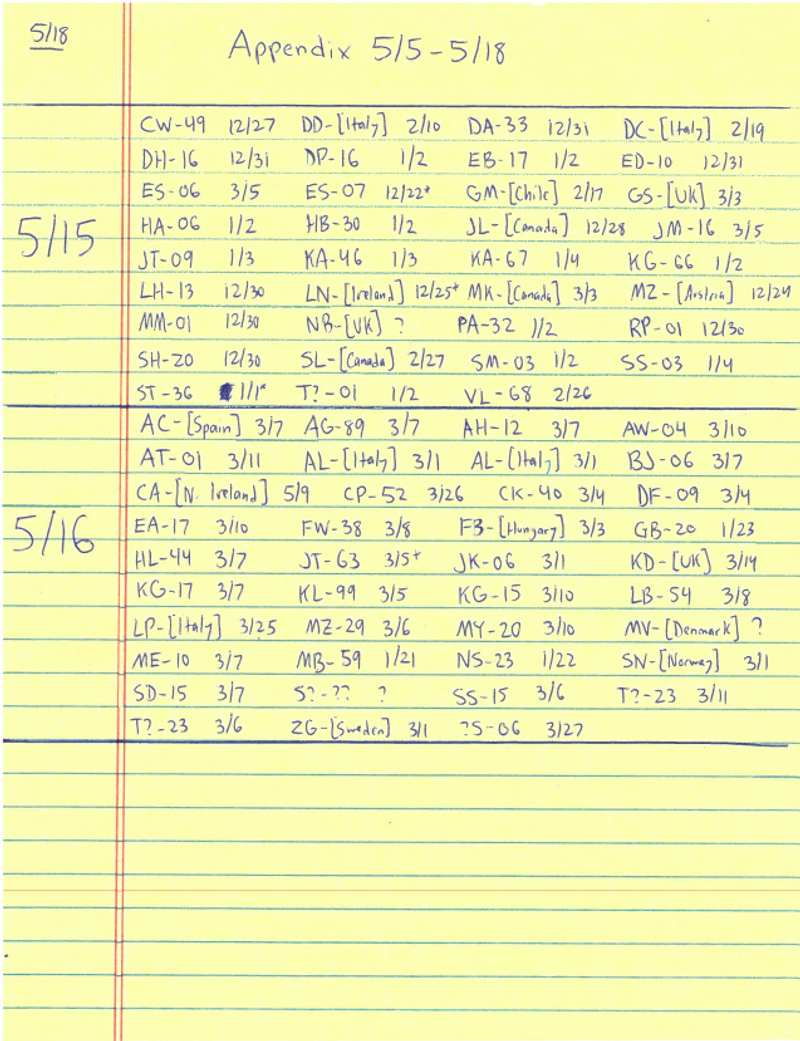 5/18
Appendix 5/5-5/18
CW-49 12/27 DD-[Italy] 2/10 DA-33 12/31 DC-[Italy] 2/19
DH-16 12/31 DP-16 1/2 EB-17 1/2 ED-10 12/31
ES-06 3/5 ES-07 12/22* GM-[Chile] 2/17 GS-[UK] 3/3
5/15
HA-06 1/2 HB-30 1/2 JL-[Canada] 12/28 JM-16 3/5
JT-09 1/3 KA-46 1/3 KA-67 1/4 KG-66 1/2
LH-13 12/30 LN-[Ireland] 12/25* MK-[Canada] 3/3 MZ-[Austria] 12/24
MM-01 12/30 NB-[UK] ? PA-32 1/2 RP-01 12/30
SH-20 12/30 SL-[Canada] 2/27 SM-03 1/2 SS-03 1/4
ST-36 1/1* T?-01 1/2 VL-68 2/26
AC-[Spain] 3/7 AG-89 3/7 AH-12 3/7 AW-04 3/10
AT-01 3/11 AL-[Italy] 3/1 AL-[Italy] 3/1 BJ-06 3/7
CA-[N. Ireland] 5/9 CP-52 3/26 CK-40 3/4 DF-09 3/4
5/16
EA-17 3/10 FW-38 3/8 FB-[Hungary] 3/3 GB-20 1/23
HL-44 3/7 JT-63 3/5* JK-06 3/1 KD-[UK] 3/14
KG-17 3/7 KL-99 3/5 KG-15 3/10 LB-54 3/8
LP-[Italy] 3/25 MZ-29 3/6 MY-20 3/10 MV-[Denmark] ?
ME-10 3/7 MB-59 1/21 NS-23 1/22 SN-[Norway] 3/1
SD-15 3/7 S?-?? ? SS-15 3/6 T?-23 3/11
T?-23 3/6 ZG-[Sweden] 3/1 ?S-06 3/27